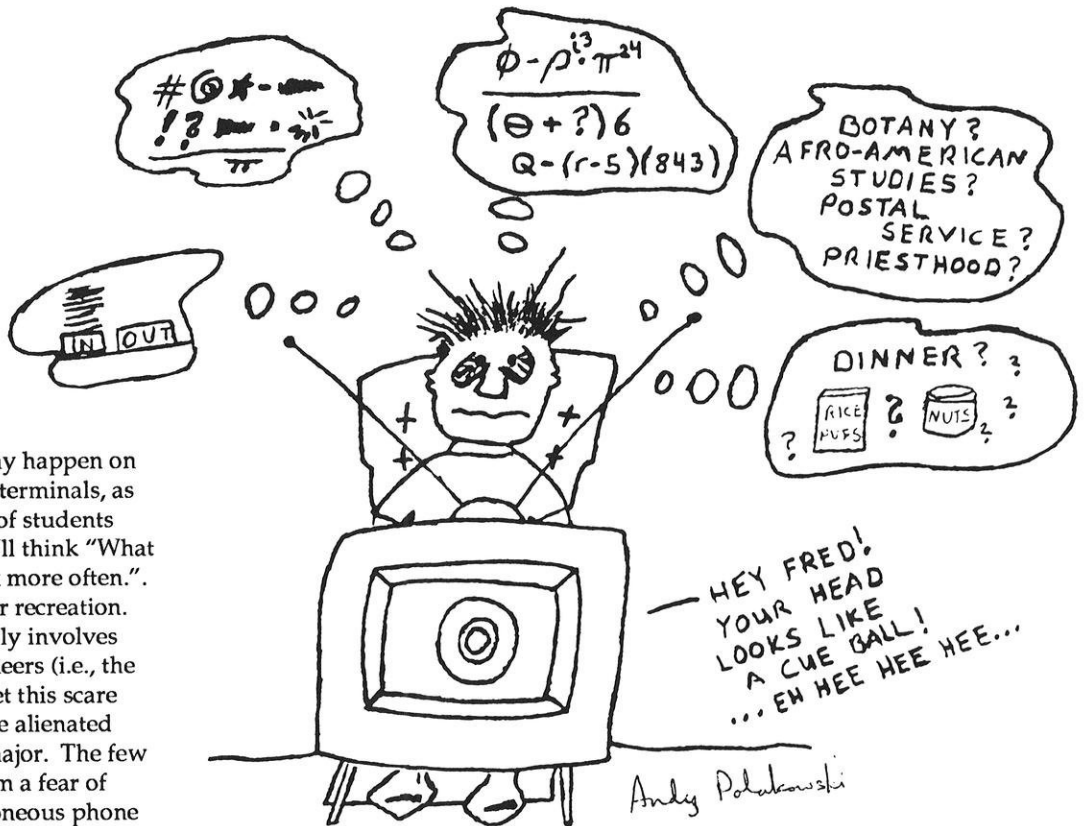 #@*-
!?
π
φ-ρi³·π²⁴
(θ+?)6
Q-(r-5)(843)
BOTANY?
AFRO-AMERICAN
STUDIES?
POSTAL
SERVICE?
PRIESTHOOD?
IN OUT
DINNER? ?
RICE
? NUTS ?
? ?
HEY FRED!
YOUR HEAD
LOOKS LIKE
A CUE BALL!
... EH HEE HEE HEE...
Andy Polakowski
ay happen on
terminals, as
of students
'll think "What
k more often.".
r recreation.
ly involves
neers (i.e., the
et this scare
e alienated
major. The few
m a fear of
oneous phone